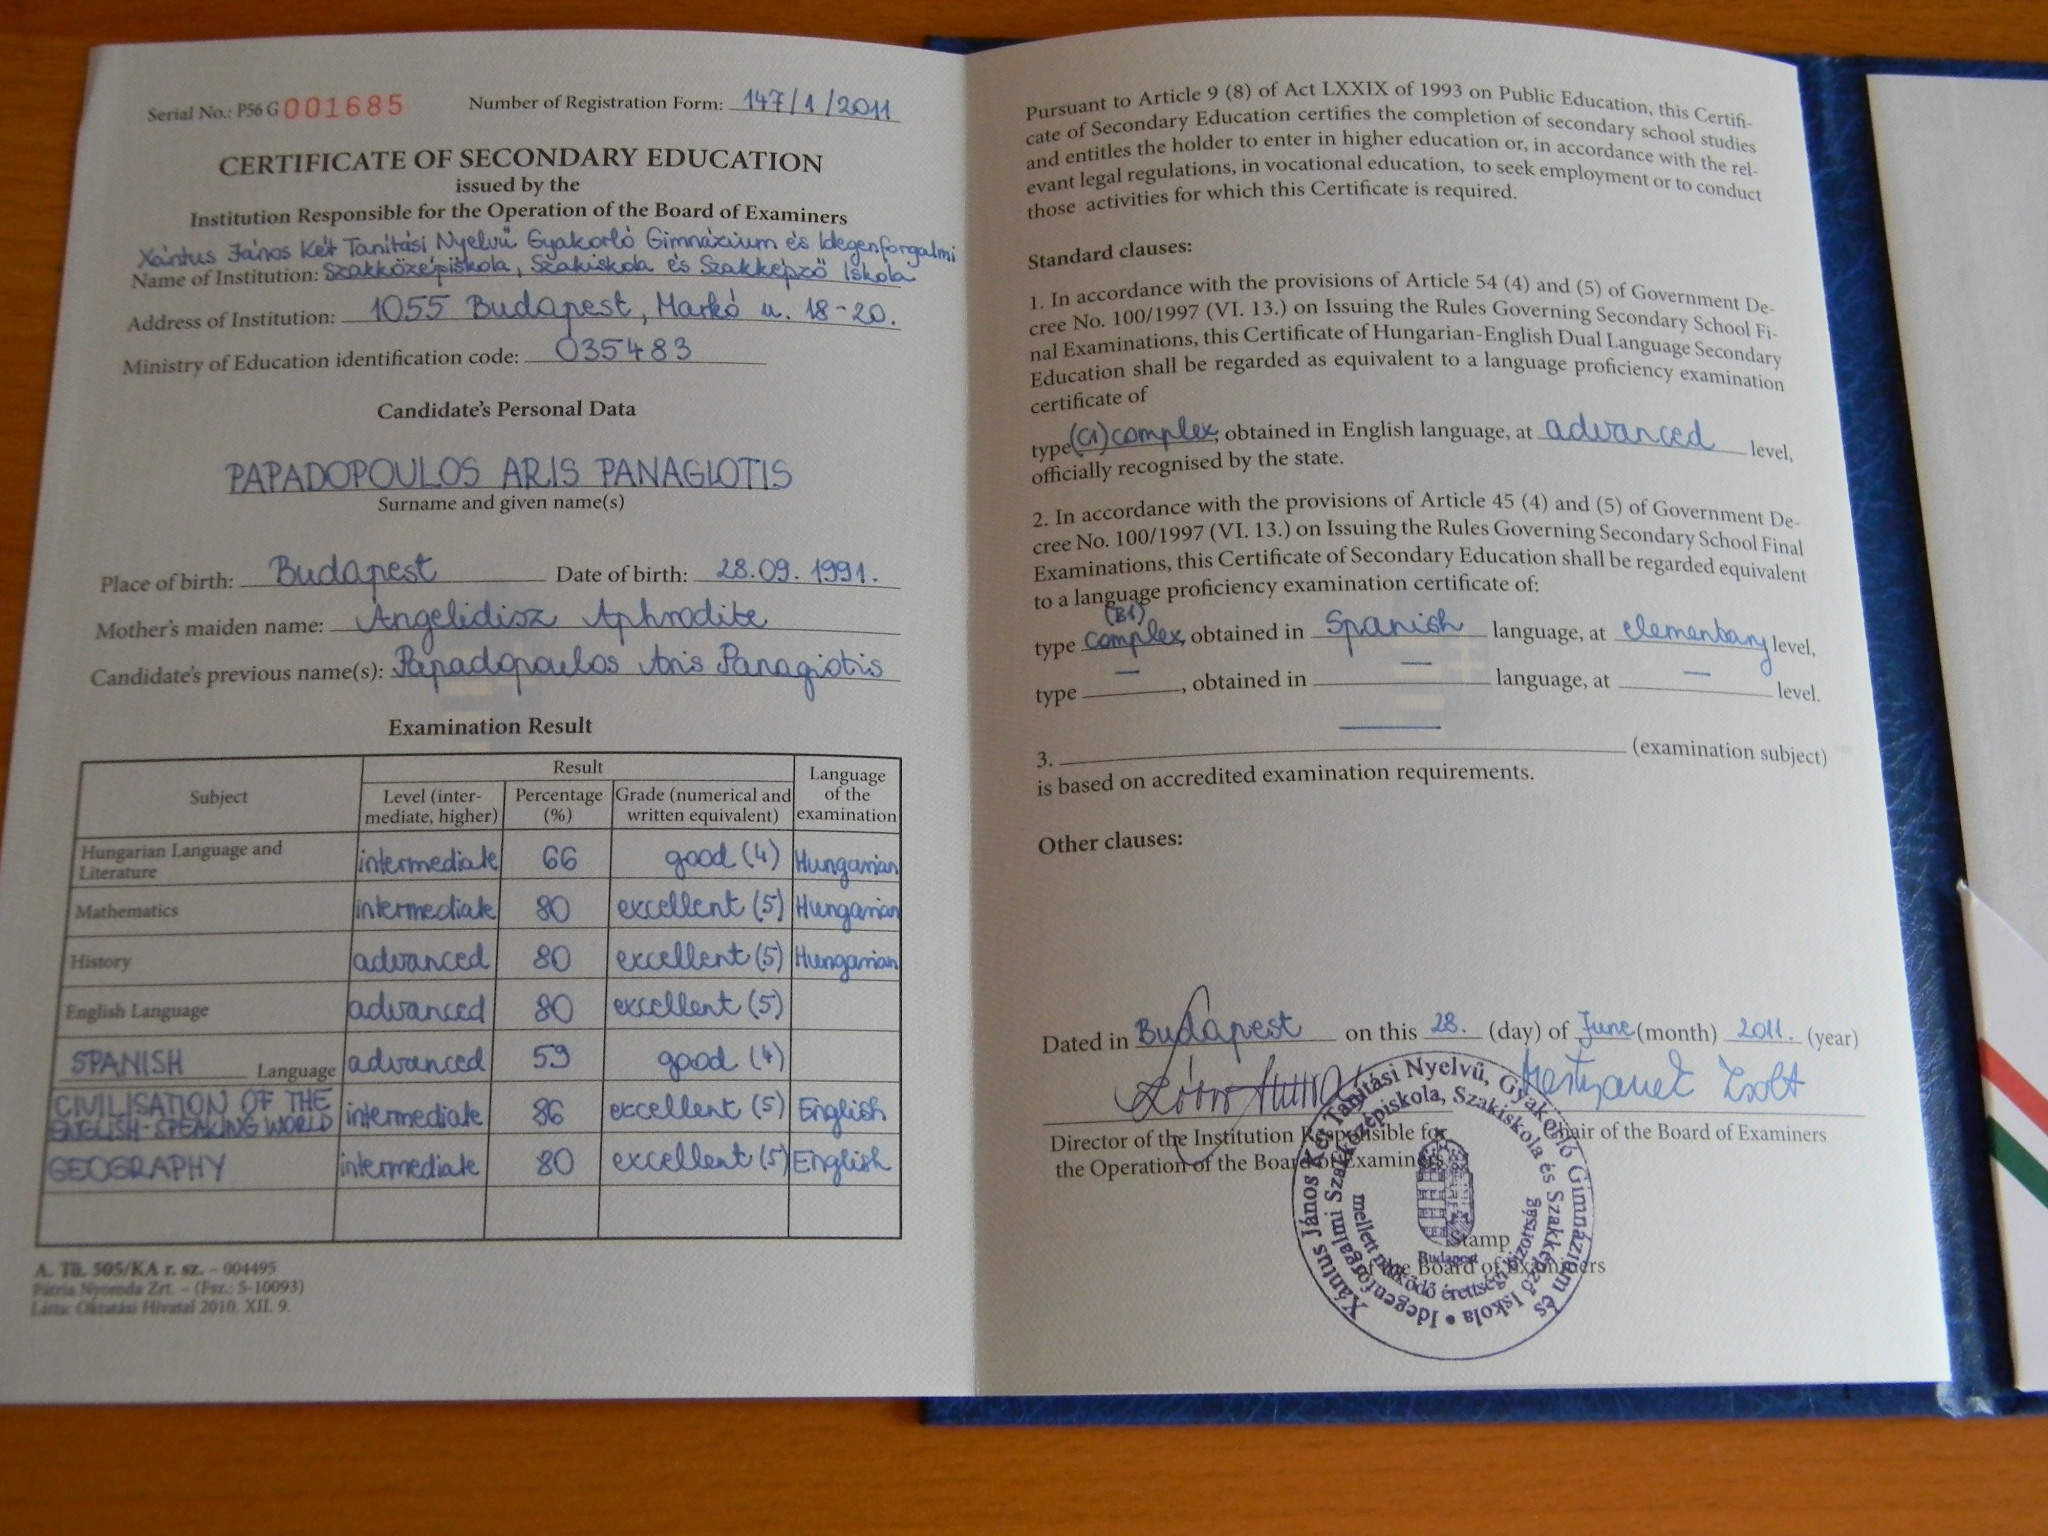 Serial No.: P56 G 001685 Number of Registration Form: 147/1/2011
CERTIFICATE OF SECONDARY EDUCATION
issued by the
Institution Responsible for the Operation of the Board of Examiners
Xántus János Két Tanítási Nyelvű Gyakorló Gimnázium és Idegenforgalmi
Name of Institution: Szakközépiskola, Szakiskola és Szakképző Iskola
Address of Institution: 1055 Budapest, Markó u. 18-20.
Ministry of Education identification code: 035483
Candidate's Personal Data
PAPADOPOULOS ARIS PANAGIOTIS
Surname and given name(s)
Place of birth: Budapest Date of birth: 28.09.1991.
Mother's maiden name: Angelidisz Aphrodite
Candidate's previous name(s): Papadopoulos Aris Panagiotis
Examination Result
Subject Result Language of the examination
Level (intermediate, higher) Percentage (%) Grade (numerical and written equivalent)
Hungarian Language and Literature intermediate 66 good (4) Hungarian
Mathematics intermediate 80 excellent (5) Hungarian
History advanced 80 excellent (5) Hungarian
English Language advanced 80 excellent (5)
SPANISH Language advanced 59 good (4)
CIVILISATION OF THE ENGLISH-SPEAKING WORLD intermediate 86 excellent (5) English
GEOGRAPHY intermediate 80 excellent (5) English
A. Tü. 505/KA r. sz. – 004495
Pátria Nyomda Zrt. – (Fsz.: 5-10093)
Látta: Oktatási Hivatal 2010. XII. 9.
Pursuant to Article 9 (8) of Act LXXIX of 1993 on Public Education, this Certifi-
cate of Secondary Education certifies the completion of secondary school studies
and entitles the holder to enter in higher education or, in accordance with the rel-
evant legal regulations, in vocational education, to seek employment or to conduct
those activities for which this Certificate is required.
Standard clauses:
1. In accordance with the provisions of Article 54 (4) and (5) of Government De-
cree No. 100/1997 (VI. 13.) on Issuing the Rules Governing Secondary School Fi-
nal Examinations, this Certificate of Hungarian-English Dual Language Secondary
Education shall be regarded as equivalent to a language proficiency examination
certificate of
type (C1) complex, obtained in English language, at advanced level,
officially recognised by the state.
2. In accordance with the provisions of Article 45 (4) and (5) of Government De-
cree No. 100/1997 (VI. 13.) on Issuing the Rules Governing Secondary School Final
Examinations, this Certificate of Secondary Education shall be regarded equivalent
to a language proficiency examination certificate of:
(B1)
type complex, obtained in Spanish language, at elementary level,
type —, obtained in — language, at — level.
3. — (examination subject)
is based on accredited examination requirements.
Other clauses:
Dated in Budapest on this 28. (day) of June (month) 2011. (year)
Zsolt
Director of the Institution Responsible for
the Operation of the Board of Examiners
Chair of the Board of Examiners
Stamp
of the Board of Examiners
Xántus János Két Tanítási Nyelvű, Gyakorló Gimnázium és
Idegenforgalmi Szakközépiskola, Szakiskola és Szakképző Iskola
mellett működő érettségi bizottság
Budapest